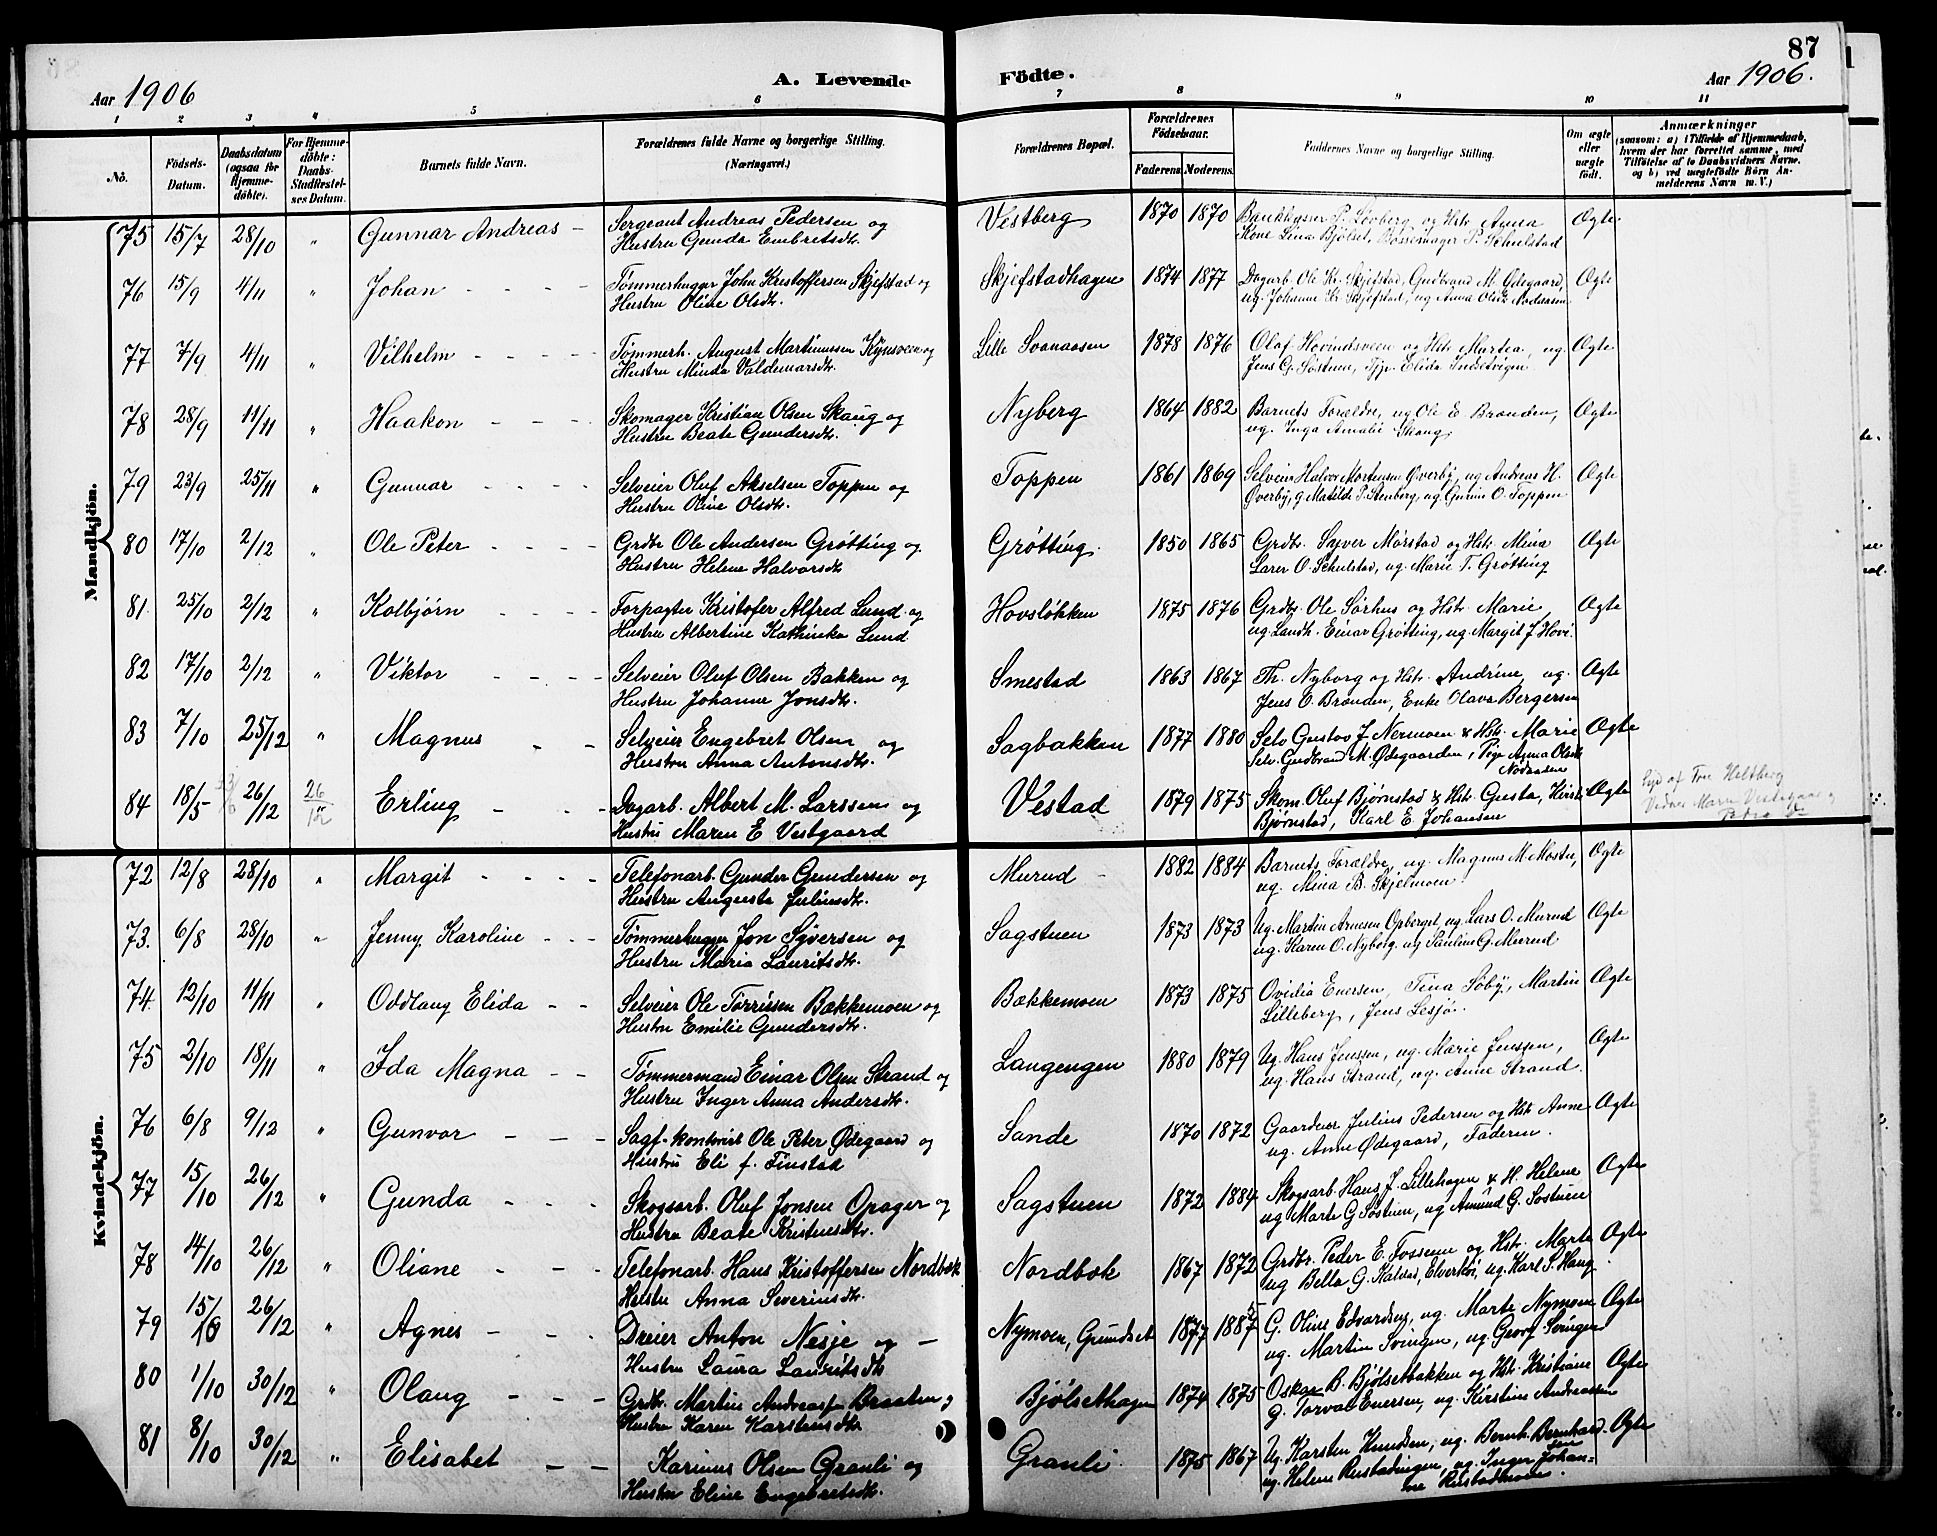 87
Aar 1906
A. Levende Födte.
Aar 1906.
1 2 3 4 5 6 7 8 9 10 11
No.
Födsels-Datum.
Daabsdatum (ogsaa for Hjemmedöbte).
For Hjemmedöbte: Daabs-Stadfestelses Datum.
Barnets fulde Navn.
Forældrenes fulde Navne og borgerlige Stilling. (Næringsvei.)
Forældrenes Bopæl.
Forældrenes Födselsaar.
Faderens. Moderens.
Faddernes Navne og borgerlige Stilling.
Om ægte eller uægte födt.
Anmærkninger
(saasom: a) i Tilfælde af Hjemmedaab, hvem der har forrettet samme, med Tilföielse af to Daabsvidners Navne, og b) ved uægtefödte Börn Anmelderens Navn m. V.)
Mandkjön.
75 15/7 28/10 " Gunnar Andreas - Sergeant Andreas Pedersen og Vestberg 1870 1870 P. Løvberg og Hstr. Anna Ægte
Hustru Gunda Embretsdtr. Kone Lina Bjølset, P. Schulstad
76 15/9 4/11 " Johan - - - - Tømmerhugger John Kristoffersen Skjefstad og Skjefstadhagen 1874 1877 Dagarb. Ole Kr. Skjefstad, Gudbrand M. Ødegaard, Ægte
Hustru Oline Olsdtr. ug. Johanne Kr. Skjefstad, ug Anna Olsdt.
77 7/9 4/11 " Vilhelm - - - - Tømmerh. August Martinussen Kynsveen og Lille Svenaasen 1878 1876 Olaf Hovindsveen og Hstr. Martea, ug. Ægte
Hustru Minda Valdemarsdtr. Jens G. Søstuen, Elida
78 28/9 11/11 " Haakon - - - Skomager Kristian Olsen Skaug og Nyberg 1864 1882 Barnets Forældre, ug Ole E. Brænden, Ægte
Hustru Beate Gundersdtr. ug. Inga Amalie Skaug
79 23/9 25/11 " Gunnar - - - - Selveier Oluf Akselsen Toppen og Toppen 1861 1869 Selveier Halvor Mortensen Øverby, ug Andreas H. Ægte
Hustru Oline Olsdtr. Øverby, g. Matilde P. Stenberg, ug Gunine O. Toppen
80 17/10 2/12 " Ole Peter - - - - Grdbr Ole Andersen Grøtting og Grøtting. 1850 1865 Grdbr. Syver Mørstad og Hstr. Mina Ægte
Hustru Helene Halvorsdtr O. Schulstad, ug. Marie T. Grøtting
81. 25/10 2/12 " Kolbjørn - - - - Forpagter Kristofer Alfred Lund og Hovsløkken 1875 1876 Grdbr. Ole Sørhus og Hstr. Marie Ægte
Hustru Albertine Kathinka Lund ug. Landh. Einar Grøtting, ug. Margit J. Hovi.
82 17/10 2/12 " Viktor - - - - Selveier Oluf Olsen Bakken og Smestad 1863 1867 Th. Nyborg og Hstr. Andrine, ug. Ægte
Hustru Johanne Jonsdtr. Jens O. Brænden, Enke Olava Bergersen
83 7/10 25/12 " Magnus - - Selveier Engebret Olsen og Sagbakken 1877 1880 Selv Gustav J Nermoen & Hstr. Marie Ægte
Hustru Anna Antonsdtr. Selv. Gudbrand M. Ødegaarden, Pige Agma Olsdt. Nodaasen
84 18/5 26/12 26/12 Erling - - Dagarb. Albert M. Larssen og Vestad 1879 1875 Skom. Oluf Bjørnstad & Hstr. Gusta, Kirsti Ægte
Hustru Maren E Vestgaard Bjørnstad, Karl E. Johansen
Kvindekjön.
72 12/8 28/10 " Margit - - - - Telefonarb. Gunder Gundersen og Murud - 1882 1884 Barnets Forældre, ug. Magnus M. Mostue, Ægte
Hustru Augusta Juliusdtr. ug. Mina B. Skjelmoen
73. 6/8 28/10 " Jenny Karoline - - - Tømmerhugger Jon Syversen og Sagstuen 1873 1873 Ug. Martin Arnesen Opberget ug. Lars O. Murud Ægte
Hustru Maria Lauritsdtr. ug. Karen O. Nyborg. ug Pauline G. Murud
74 12/10 11/11 " Oddlaug Elida - - Selveier Ole Torrissen Bækkemoen og Bækkemoen 1873 1875 Ovidia Enersen, Tina Søby, Martin Ægte
Hustru Emilie Gundersdtr. Lilleberg, Jens Lesjø.
75 2/10 18/11 " Ida Magna - - Tømmermand Einar Olsen Strand og Langengen 1880 1879 Ug. Hans Jenssen, ug. Marie Jenssen, Ægte
Hustru Inger Anna Andersdtr. ug. Hans Strand, ug. Anne Strand.
76 6/8 9/12 " Gunvor - - - Sagf-kontorist Ole Peter Ødegaard og Sande 1870 1872 Gaardeier Julius Pedersen og Hstr Anne Ægte
Hustru Eli f. Finstad ug. Anne Ødegaard, Faderen.
77 15/10 26/12 " Gunda - - - Skogsarb. Oluf Jonsen Opager og Sagstuen 1872 1884 Skogsarb. Hans J. Lillehagen & H. Helene Ægte
Hustru Beate Kristiansdtr. ug Marte G Søstuen, ug Amund G. Søstuen
78 14/10 26/12 " Oliane - - - Telefonarb. Hans Kristoffersen Nordbok Nordbok 1867 1872 Grdbr. Peder E. Fossenn og Hstr. Marte Ægte
Hustr Anna Severinsdtr. ug Bella G. Kalstad, Elverhøi, ug. Karl P. Haug
79 15/10 26/12 " Agnes - - - Dreier Anton Nesje og - Nymoen, Grundset 1877 1887 G. Oline Edvardsen, ug. Marte Nymoen Ægte
Hustru Laura Lauritsdtr ug. Martin Svingen, ug. Georg Svingen
80 1/10 30/12 " Olaug - - - Grdbr. Martin Andreassen Braaten og Bjølsethagen 1874 1875 Oskar B. Bjølsetbakken og Hstr. Kristiane Ægte
Hustru Karen Karstensdtr g. Torval Enersen, ug. Kirstine Andreassen
81 8/10 30/12 " Elisabet - - Karinus Olsen Granli og Granli. 1875 1867 Ug. Karsten Knudsen, ug. Bernh. Bernhardsen Ægte
Hustru Eline Engebretsdtr. ug. Helene Rustadengen, ug. Inger Johanne Rustadmoen.